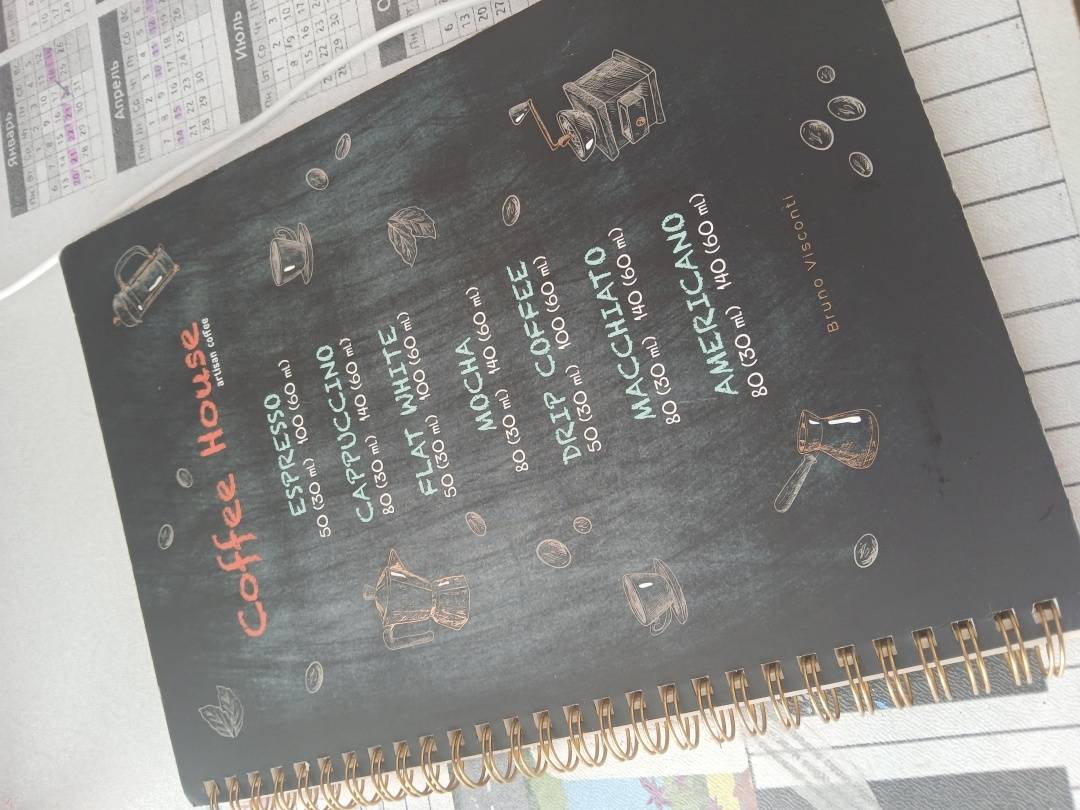 Coffee House
artisan coffee
ESPRESSO
50 (30 mL) 100 (60 mL)
CAPPUCCINO
80 (30 mL) 140 (60 mL)
FLAT WHITE
50 (30 mL) 100 (60 mL)
MOCHA
80 (30 mL) 140 (60 mL)
DRIP COFFEE
50 (30 mL) 100 (60 mL)
MACCHIATO
80 (30 mL) 140 (60 mL)
AMERICANO
80 (30 mL) 140 (60 mL)
Bruno Visconti
Январь
Апрель
Июль